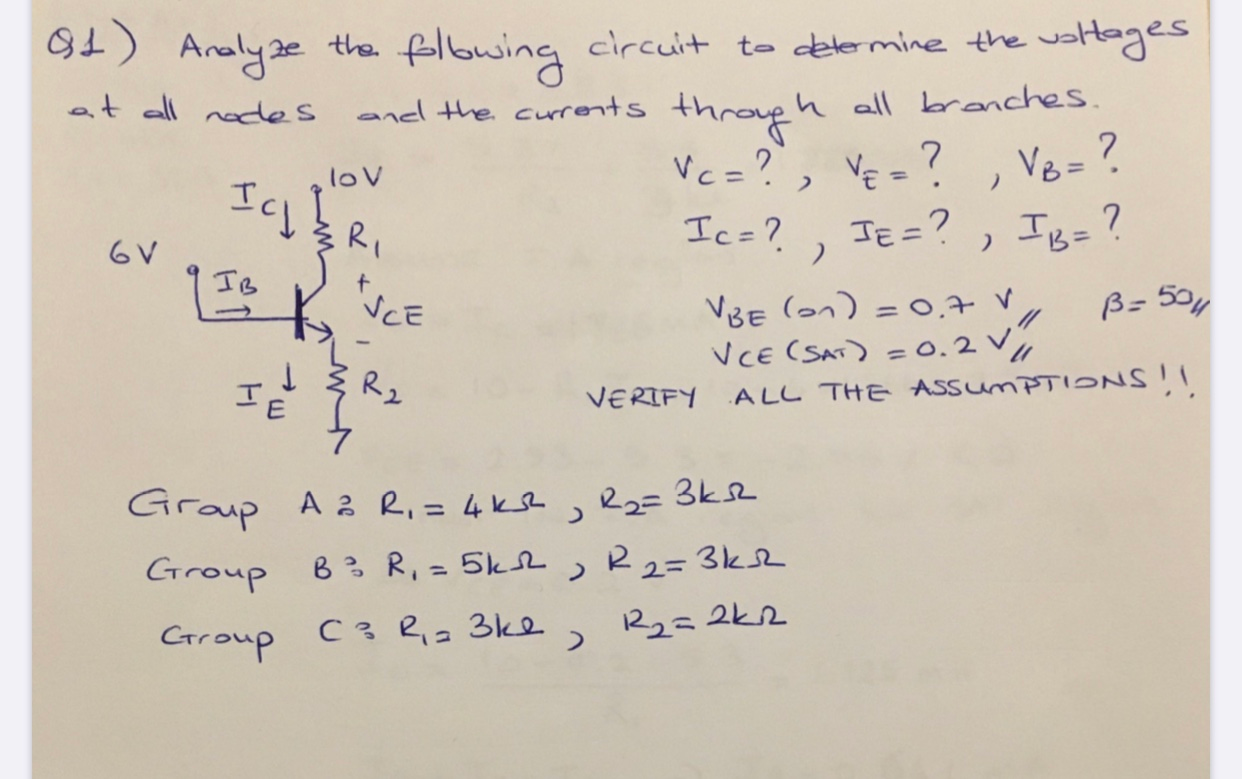 Q1) Analyze the following circuit to determine the voltages
at all nodes and the currents through all branches.
VC = ? , VE = ? , VB = ?
IC = ? , IE = ? , IB = ?
IC↓ 10V
R1
6V
IB →
+
VCE
-
IE ↓ R2
VBE (on) = 0.7 V// β = 50//
VCE (SAT) = 0.2 V//
VERIFY ALL THE ASSUMPTIONS!!
Group A : R1 = 4kΩ , R2 = 3kΩ
Group B : R1 = 5kΩ , R2 = 3kΩ
Group C : R1 = 3kΩ , R2 = 2kΩ